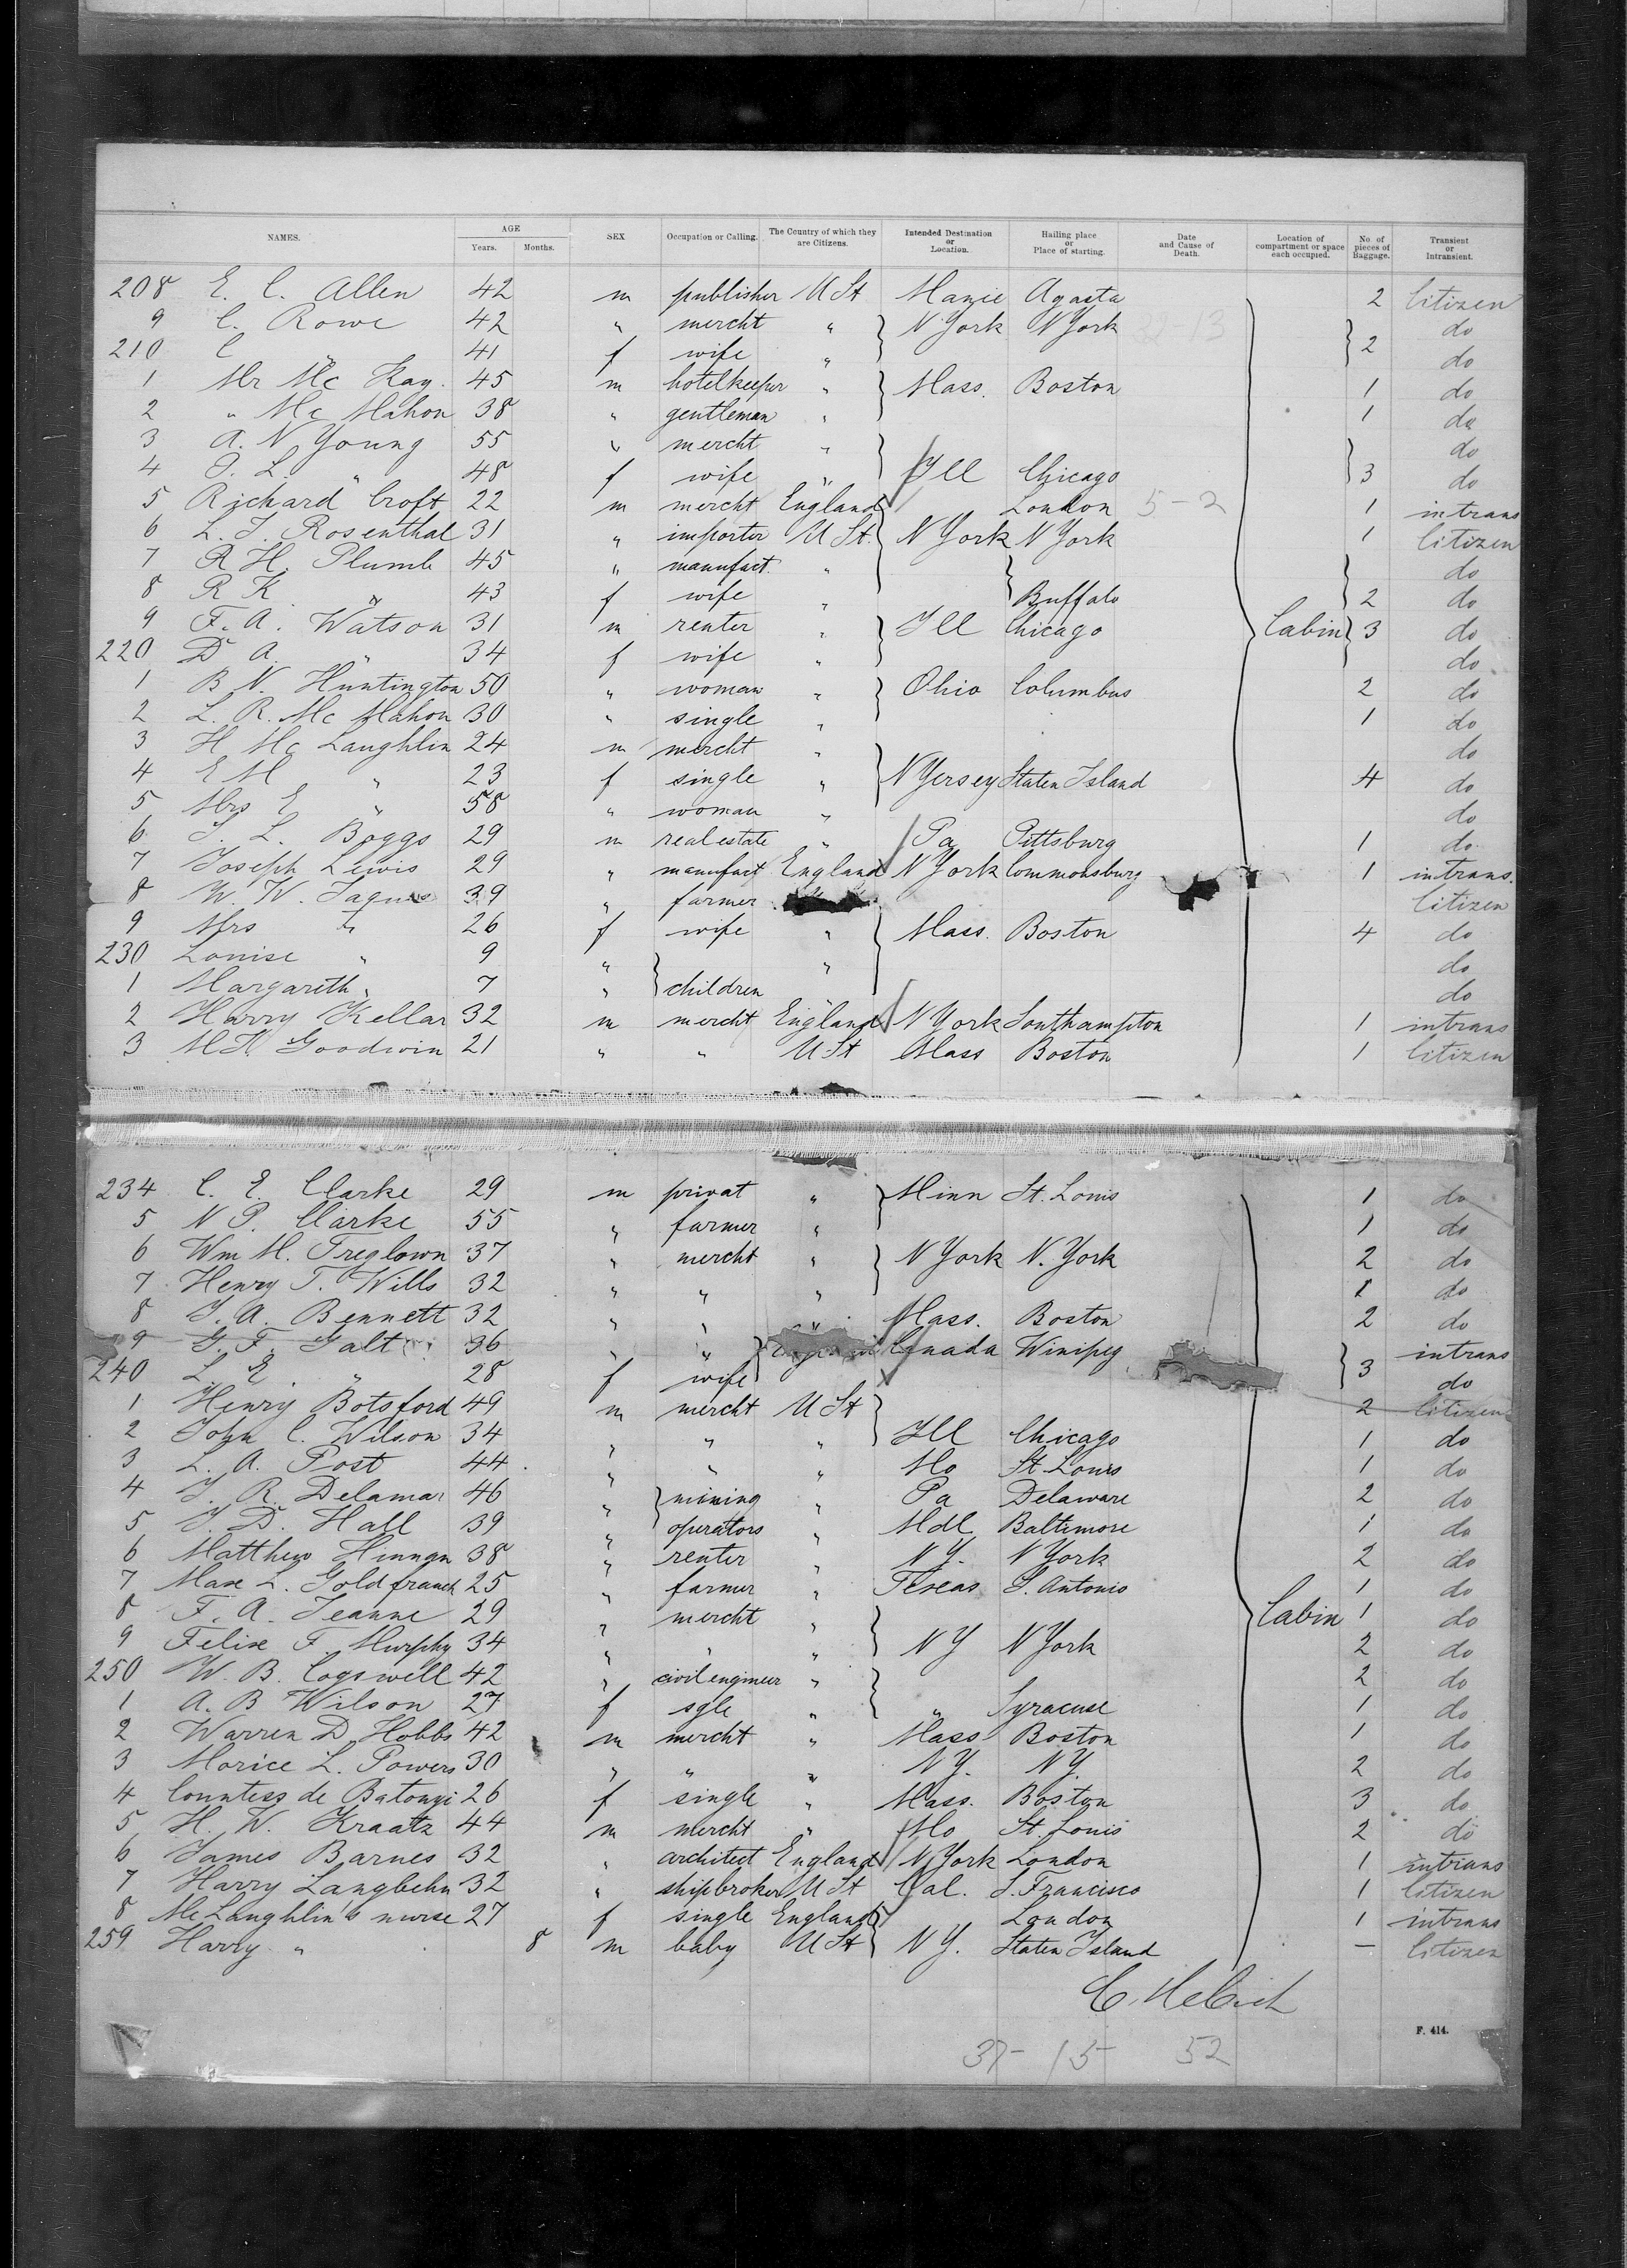 NAMES. AGE Years. Months. SEX Occupation or Calling. The Country of which they are Citizens. Intended Destination or Location. Hailing place or Place of starting. Date and Cause of Death. Location of compartment or space each occupied. No. of pieces of Baggage. Transient or Intransient.
208 E. C. Allen 42 m publisher U St Manie Agasta 2 Citizen
9 C. Rowe 42 " mercht " N York N York do
210 C " 41 f wife " 2 do
1 Mr Mc Kay. 45 m hotelkeeper " Mass. Boston 1 do
2 " Mc Mahon 38 " gentleman " 1 do
3 A. N. Young 55 " mercht " do
4 P. L. " 48 f wife " Ill Chicago 3 do
5 Richard Croft 22 m mercht England London 5-2 1 intrans
6 L. J. Rosenthal 31 " importer U St. N York N York 1 Citizen
7 R. H. Plumb 45 " manufact. " do
8 R K " 43 f wife " Buffalo 2 do
9 F. A. Watson 31 m renter " Ill Chicago Cabin 3 do
220 D A " 34 f wife " do
1 B N. Huntington 50 " woman " Ohio Columbus 2 do
2 L. R. Mc Mahon 30 " single " 1 do
3 H Mc Laughlin 24 m mercht " do
4 E M " 23 f single " N Yersey Staten Island 4 do
5 Mrs E " 58 " woman " do
6 S. L. Boggs 29 m real estate " Pa Pittsburg 1 do
7 Joseph Lewis 29 " manufact England N York Commonsburg 1 intrans.
8 W. W. Jaques 39 " farmer Citizen
9 Mrs " 26 f wife " Mass. Boston 4 do
230 Louise " 9 " " do
1 Margareth " 7 " children do
2 Harry Kellar 32 m mercht England N York Southampton 1 intrans
3 M H Goodwin 21 " " U St Mass Boston 1 Citizen
234 C. E. Clarke 29 m privat " Minn St. Louis 1 do
5 N P. Clarke 55 " farmer " 1 do
6 Wm M. Treglown 37 " mercht " N York N. York 2 do
7 Henry T. Wills 32 " " " 1 do
8 J. A. Bennett 32 " " " Mass. Boston 2 do
9 G. F. Galt 36 " " Canada Winipeg intrans
240 L. E. " 28 f wife 3 do
1 Henry Botsford 49 m mercht U St 2 Citizen
2 John C. Wilson 34 " " " Ill Chicago 1 do
3 L. A. Post 44 " " " Mo St Louis 1 do
4 J. R. Delamar 46 " mining " Pa Delaware 2 do
5 J. D. Hall 39 " operators " Mdl Baltimore 1 do
6 Matthew Hinman 38 " renter " N Y. N York 2 do
7 Max L. Goldfranck 25 " farmer " Texas S. Antonio 1 do
8 F. A. Jeanne 29 " mercht " Cabin 1 do
9 Felix F. Murphy 34 " " " N Y N York 2 do
250 W. B. Cogswell 42 " civil engineer " 2 do
1 A. B Wilson 27 f sgle " " Syracuse 1 do
2 Warren D. Hobbs 42 m mercht " Mass Boston 1 do
3 Morice L. Powers 30 " " " N Y. N Y. 2 do
4 Countess de Batonyi 26 f single " Mass. Boston 3 do
5 H. W. Kraatz 44 m mercht " Mo St. Louis 2 do
6 James Barnes 32 " architect England N York London 1 intrans
7 Harry Langbehn 32 " shipbroker U St Cal. S. Francisco 1 Citizen
8 Mc Laughlin's nurse 27 f single England London 1 intrans
259 Harry " 8 m baby U St N Y. Staten Island - Citizen
37 - 15 52
F. 414.